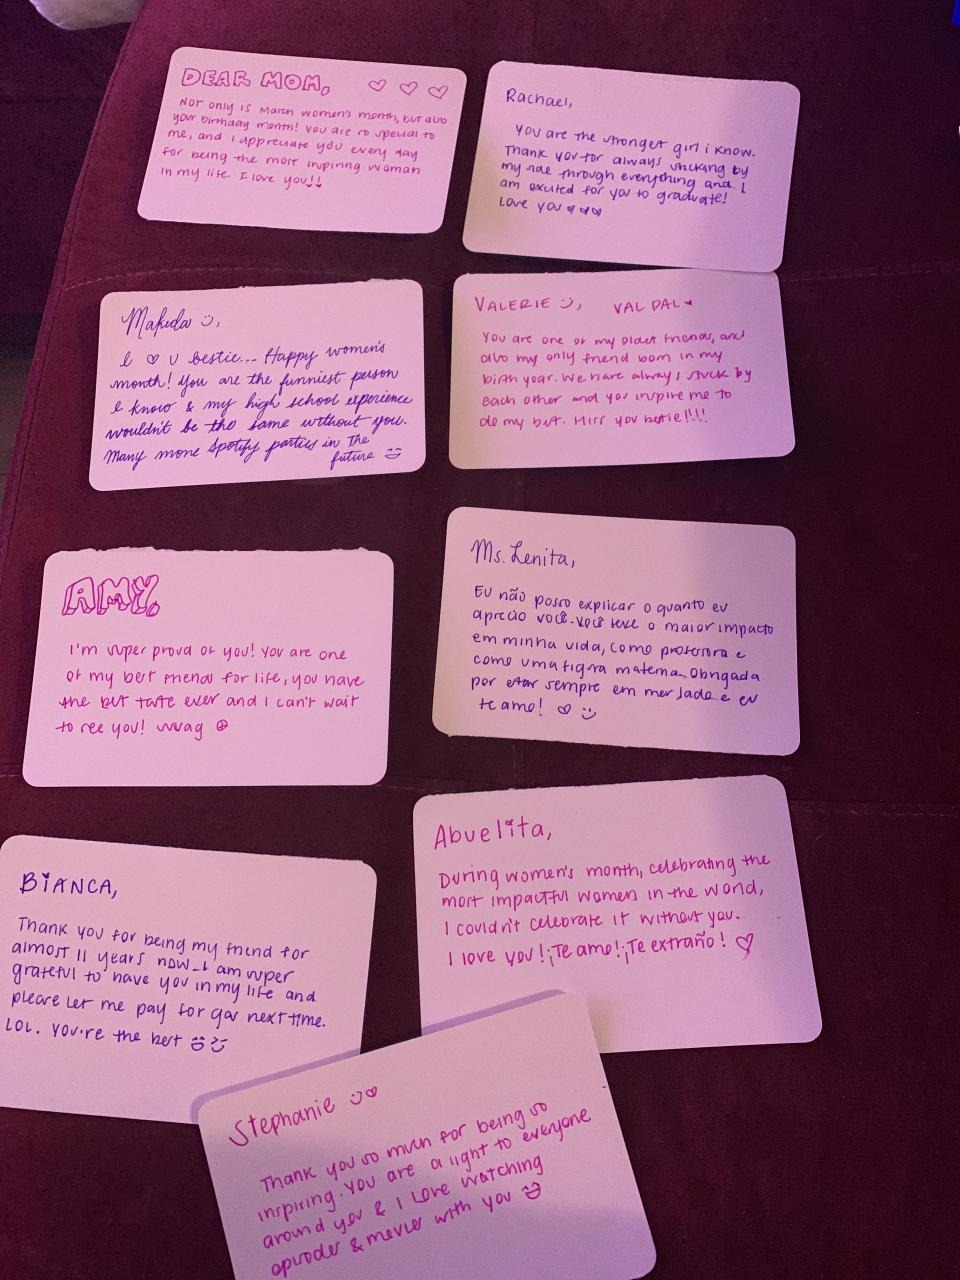 DEAR MOM, ♡ ♡ ♡
NOT only is March women's month, but also
your birthday month! You are so special to
me, and I appreciate you every day
for being the most inspiring woman
in my life. I love you!!
Rachael,
You are the strongest girl i know.
Thank you for always sticking by
my side through everything and I
am excited for you to graduate!
Love you ♡♡♡
Makeda :),
I ♡ U bestie... Happy women's
month! You are the funniest person
I know & my high school experience
wouldn't be the same without you.
Many more Spotify parties in the
future :)
VALERIE :), VAL PAL ♥
You are one of my oldest friends, and
also my only friend born in my
birth year. We have always stuck by
each other and you inspire me to
do my best. Miss you bestie!!!!
AMY,
I'm super proud of you! You are one
of my best friends for life, you have
the best taste ever and I can't wait
to see you! swag ☮
Ms. Lenita,
Eu não posso explicar o quanto eu
aprecio você. Você teve o maior impacto
em minha vida, como professora e
como uma figra materna. Obrigada
por estar sempre em meu lado e eu
te amo! ♡ :)
BIANCA,
Thank you for being my friend for
almost 11 years now. I am super
grateful to have you in my life and
please let me pay for gas next time.
LOL. You're the best :) :)
Abuelita,
During women's month, celebrating the
most impactful women in the world,
I couldn't celebrate it without you.
I love you! ¡Te amo! ¡Te extraño! ♡
Stephanie :)♡
Thank you so much for being so
inspiring. You are a light to everyone
around you & I love watching
episodes & movies with you :)